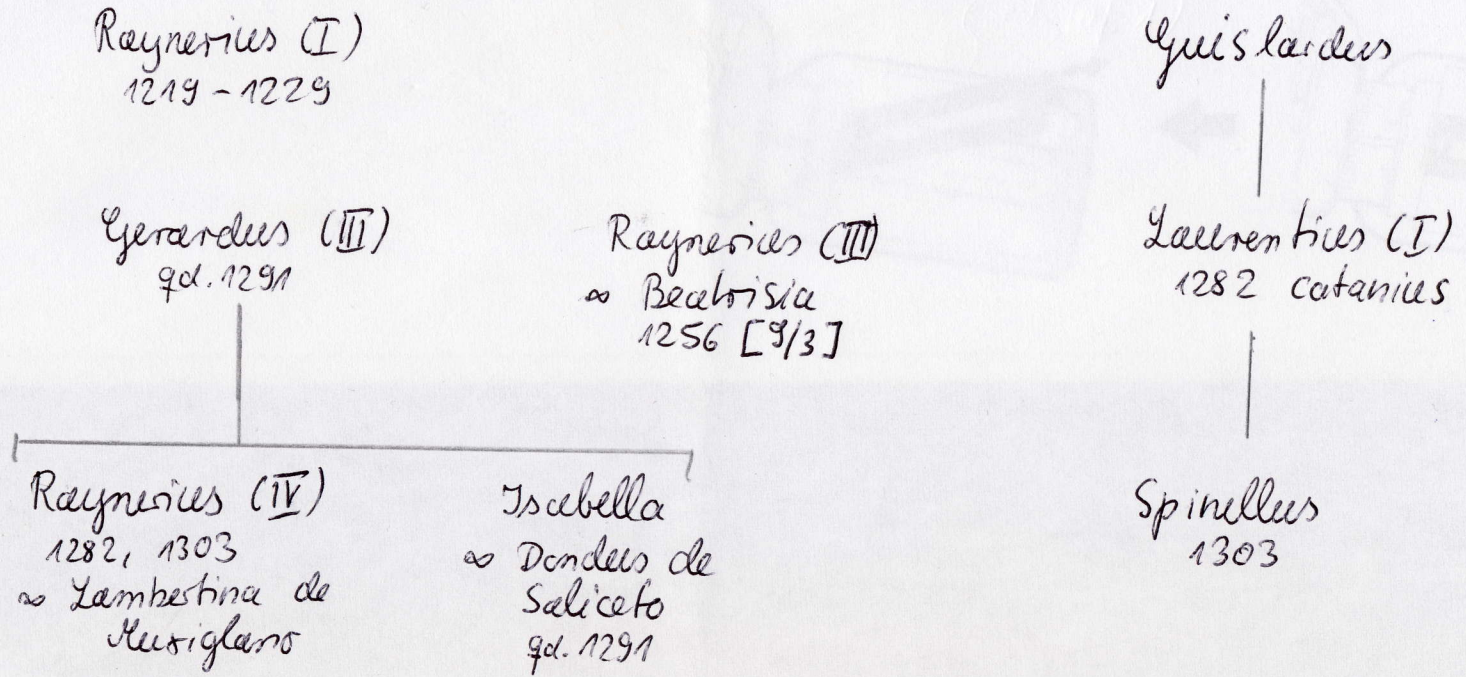 Raynerius (I)
1219 - 1229
Guislardus
Gerardus (III)
qd. 1291
Raynerius (III)
∞ Beatrisia
1256 [9/3]
Laurentius (I)
1282 catanius
Raynerius (IV)
1282, 1303
∞ Lambertina de
Muriglano
Isabella
∞ Dondus de
Saliceto
qd. 1291
Spinellus
1303